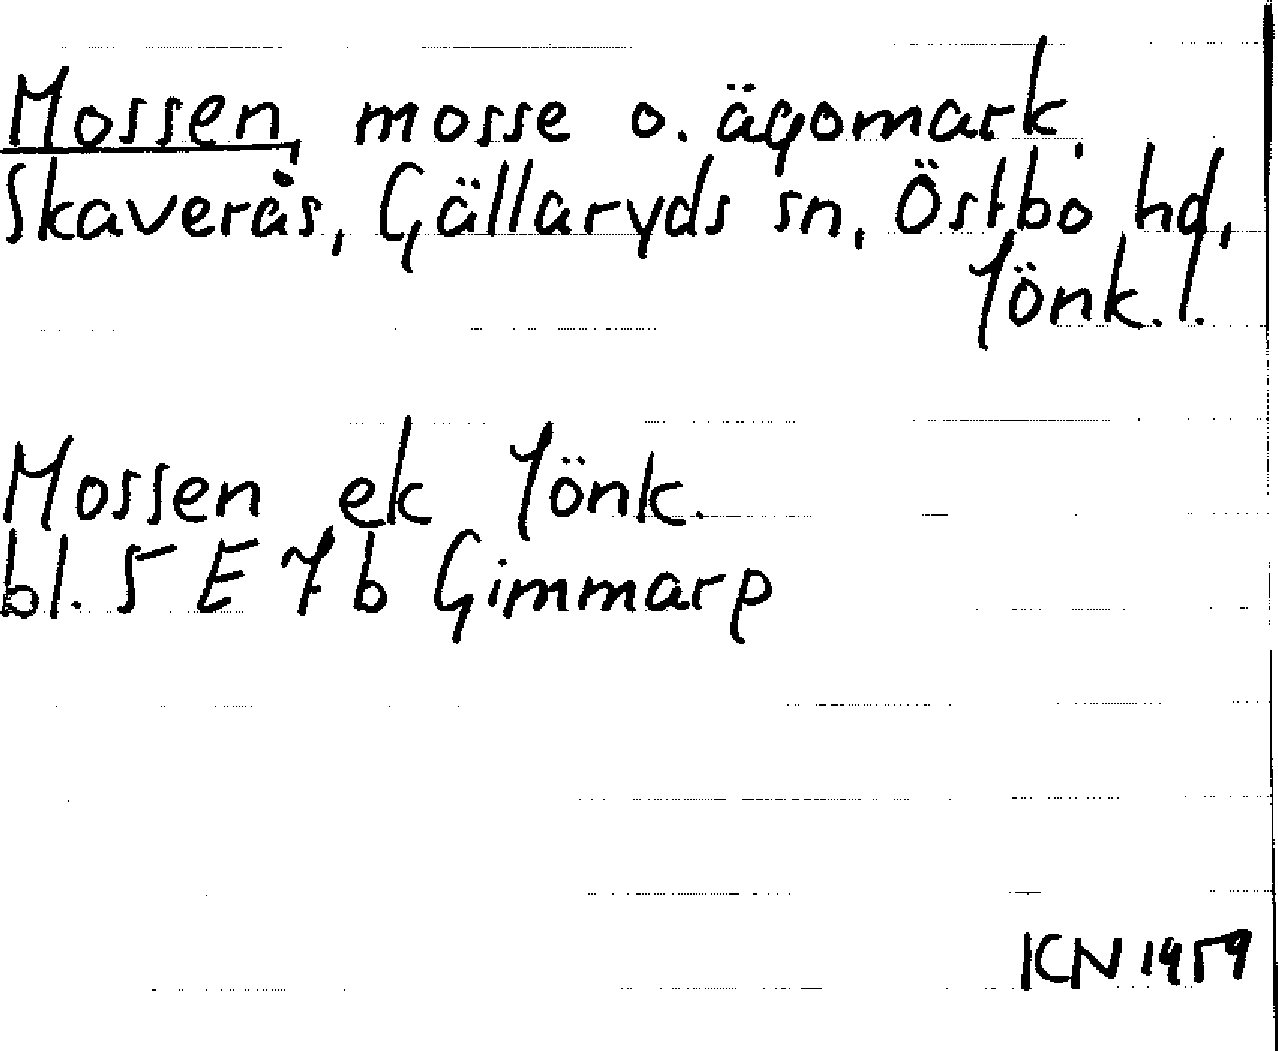 Mossen, mosse o. ägomark,
Skaverås, Gällaryds sn, Östbo hd,
Jönk. l.
Mossen ek Jönk.
bl. 5 E 7 b Gimmarp
KN 1959